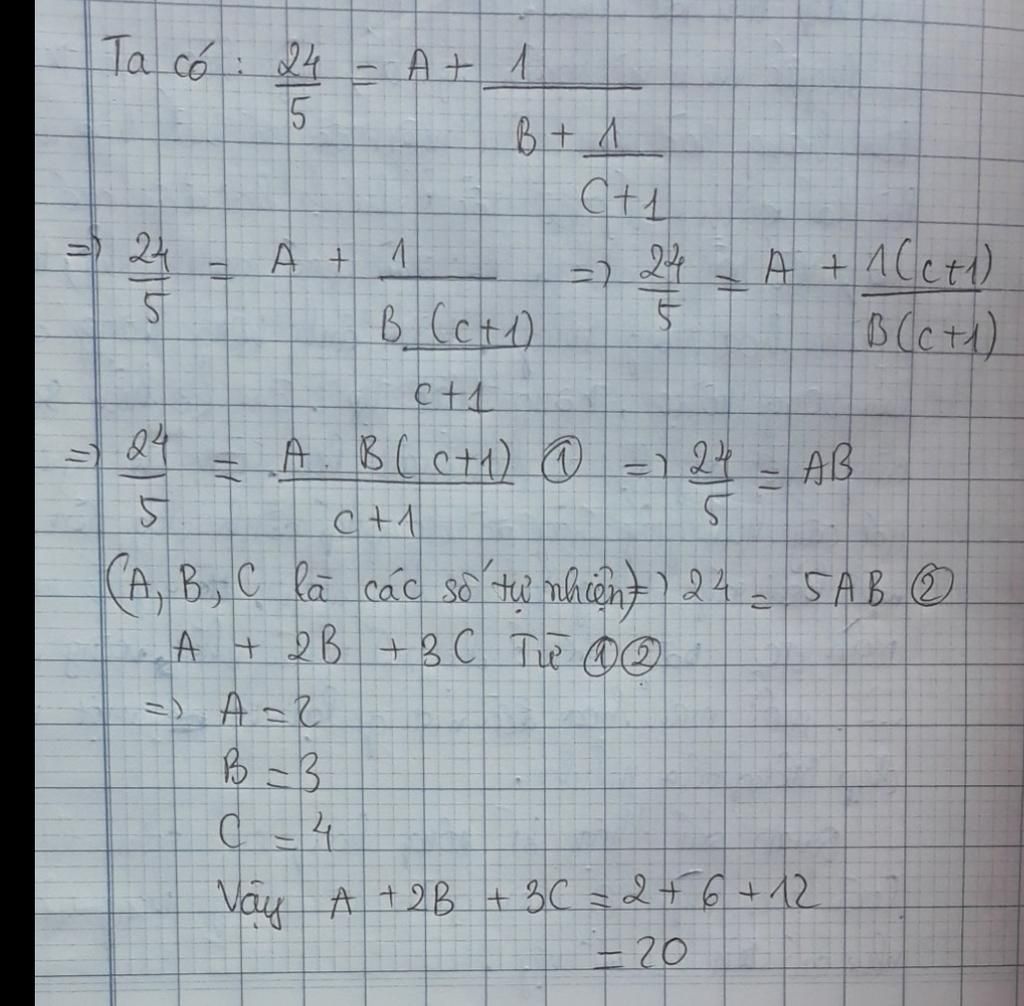 Ta có : 24/5 = A + 1/(B + 1/(C+1))
=> 24/5 = A + 1/(B (c+1)/(c+1)) => 24/5 = A + 1(c+1)/B(c+1)
=> 24/5 = A . B( c+1)/(c+1) ① => 24/5 = AB
(A, B, C là các số tự nhiên) => 24 = 5AB ②
A + 2B + 3C Từ ①②
=> A = 2
B = 3
C = 4
Vậy A + 2B + 3C = 2 + 6 + 12
= 20